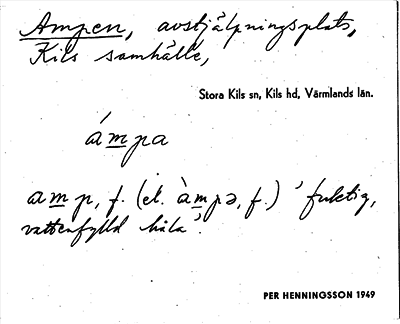 Ampen, avstjälpningsplats,
Kils samhälle,
Stora Kils sn, Kils hd, Värmlands län.
ámpa
amp, f. (el. àmpə, f.) 'fuktig,
vattenfylld håla'.
PER HENNINGSSON 1949